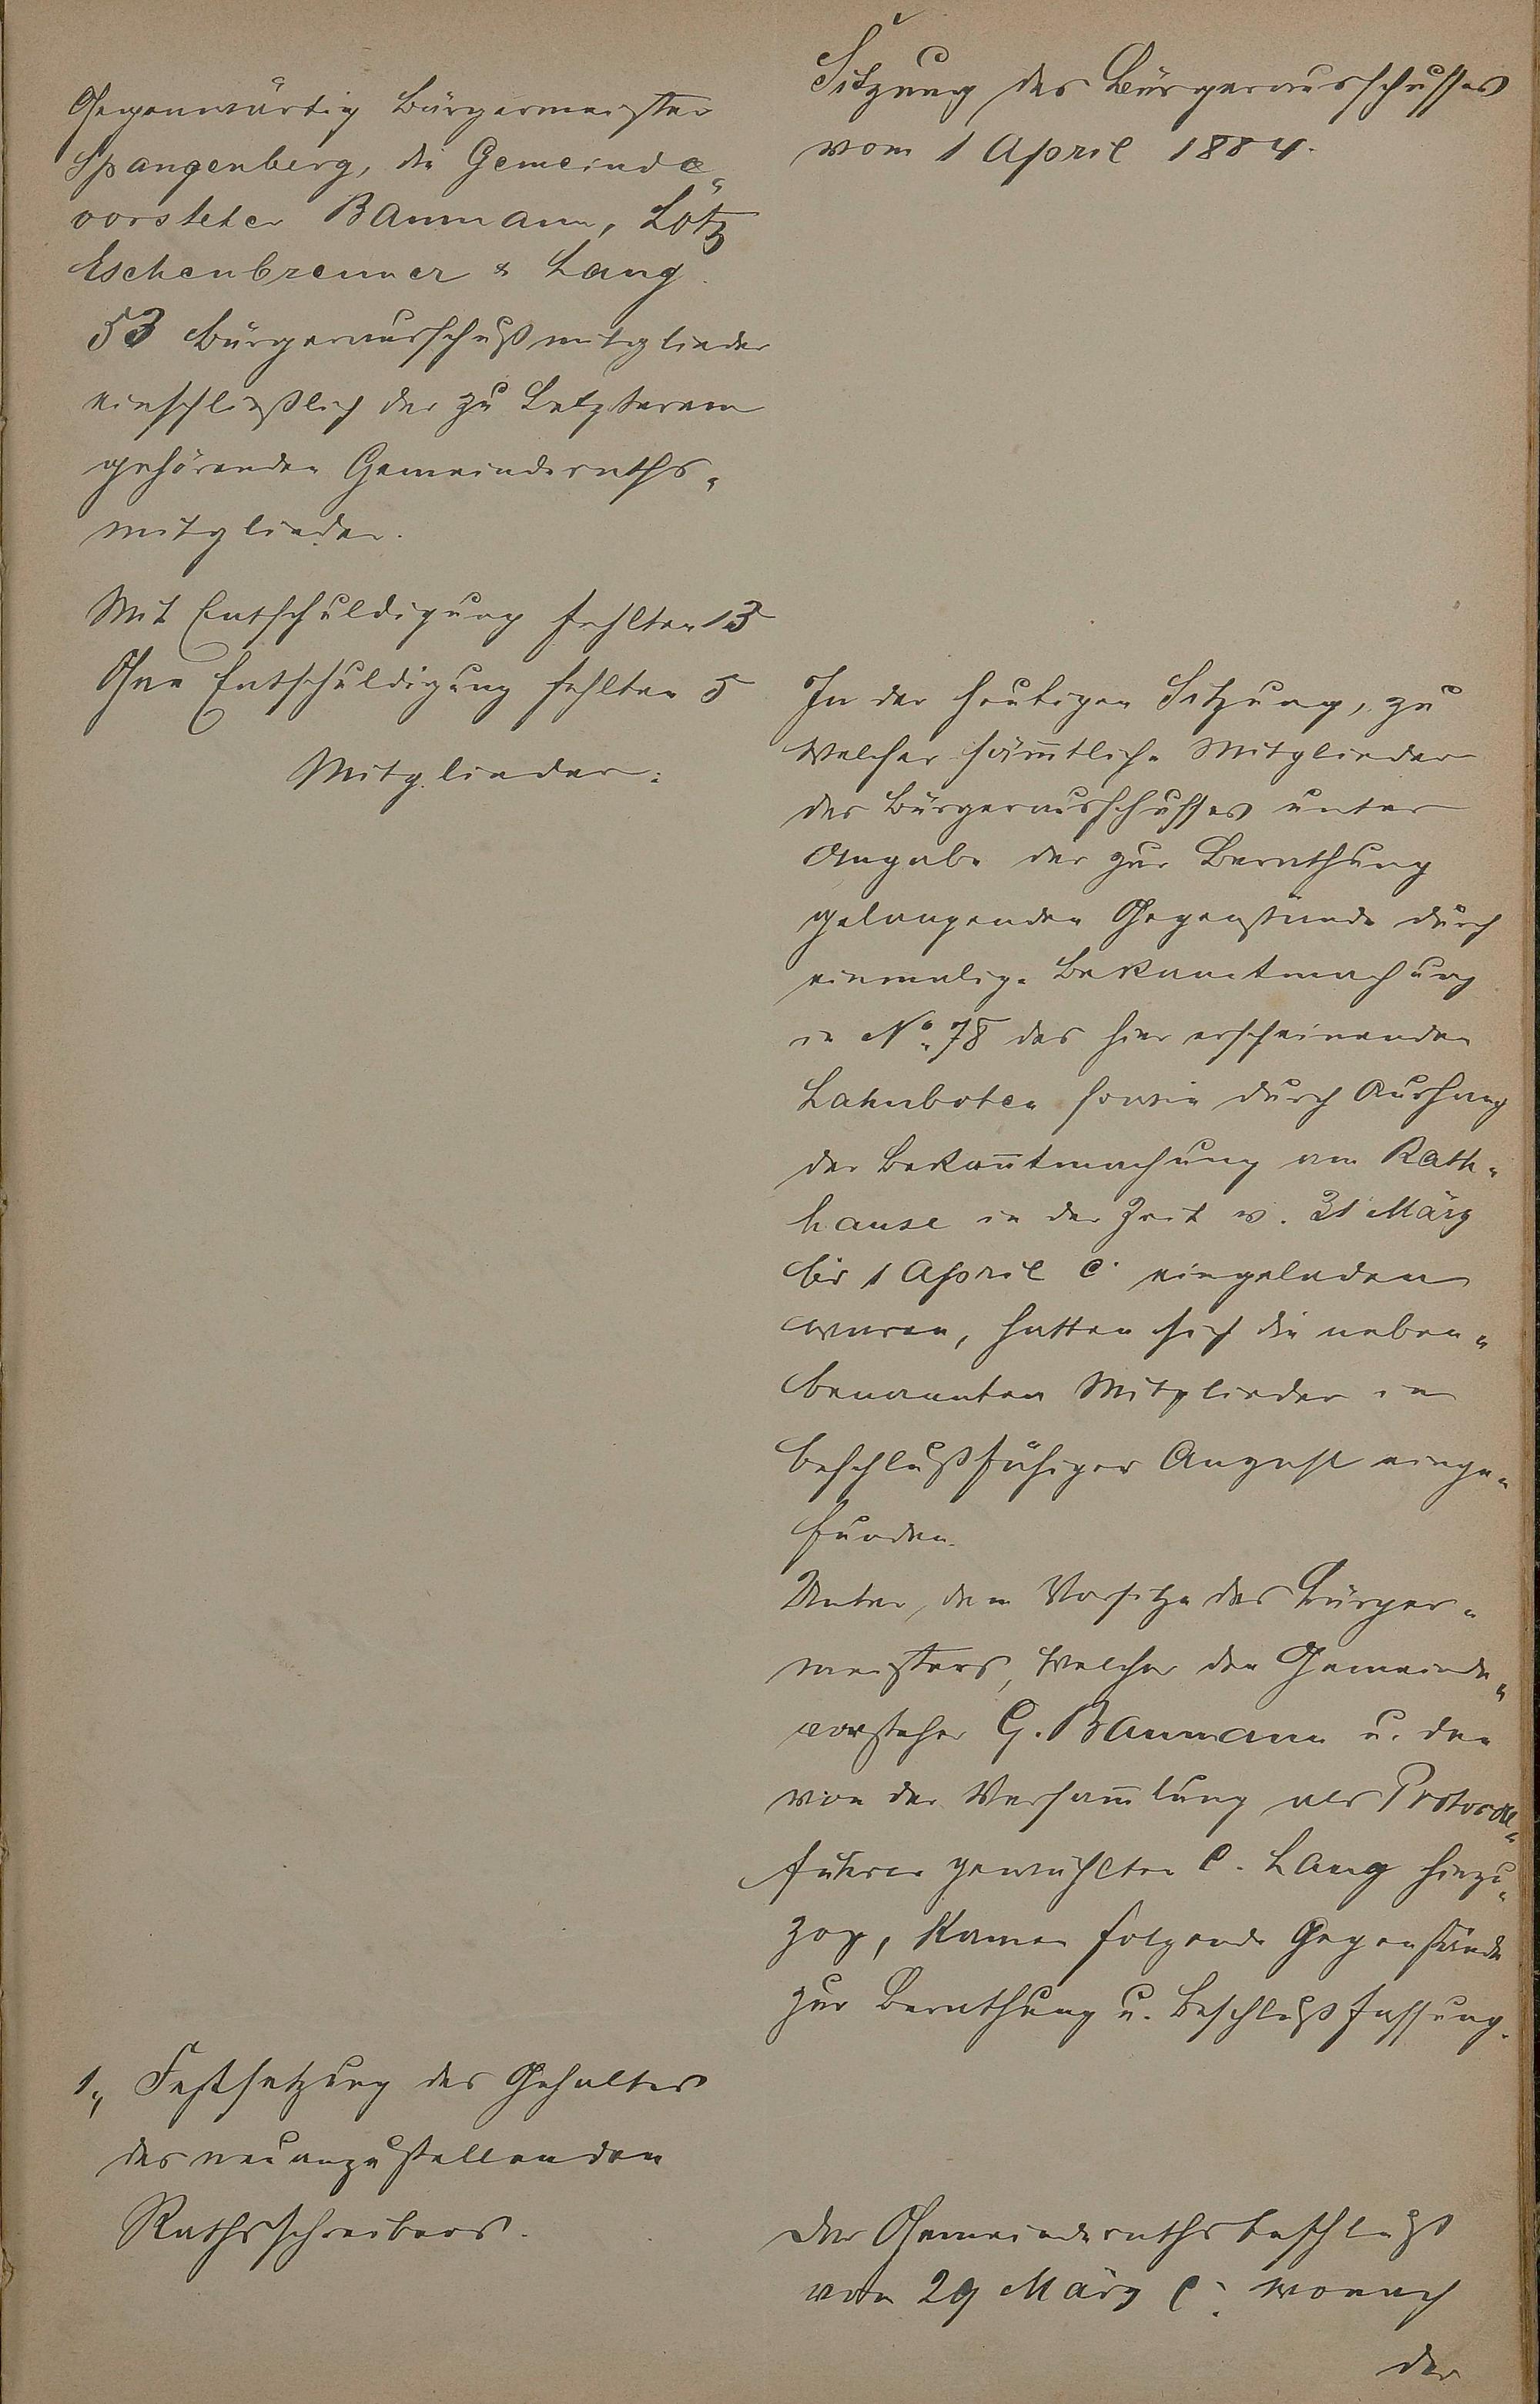 Gegenwärtig Bürgermeister
Spangenberg, die Gemeinde„
vorsteher Baumann, Lötz
Eschenbrenner & Lang.
53 Bürgerausschußmitglieder
einschließlich der zu Letzterem
gehörenden Gemeinderaths„
mitglieder.
Mit Entschuldigung fehlten 13
Ohne Entschuldigung fehlten 5
Mitglieder.
1., Festsetzung des Gehaltes
des neuanzustellenden
Rathsschreibers.
Sitzung des Bürgerausschusses
vom 1 April 1884.
In der heutigen Sitzung, zu
welcher säm̄tliche Mitglieder
des Bürgerausschusses unter
Angabe der zur Berathung
gelangenden Gegenstände durch
einmalige Bekanntmachung
in No. 78 des hier erscheinenden
Lahnboten sowie durch Aushang
der Bekan̄tmachung am Rath„
hause in der Zeit v. 31 März
bis 1 April c. eingeladen
waren, hatten sich die neben„
benannten Mitglieder in
beschlußfähiger Anzahl einge„
funden.
Unter dem Vorsitze des Bürger„
meisters, welcher den Gemeinde„
vorsteher G. Baumann u. den
von der Versam̄lung als Protocoll„
führer gewählten C. Lang hinzu„
zog, kamen folgende Gegenstände
zur Berathung u. Beschlußfassung.
Der Gemeinderathsbeschluß
vom 29 März c. wonach
der